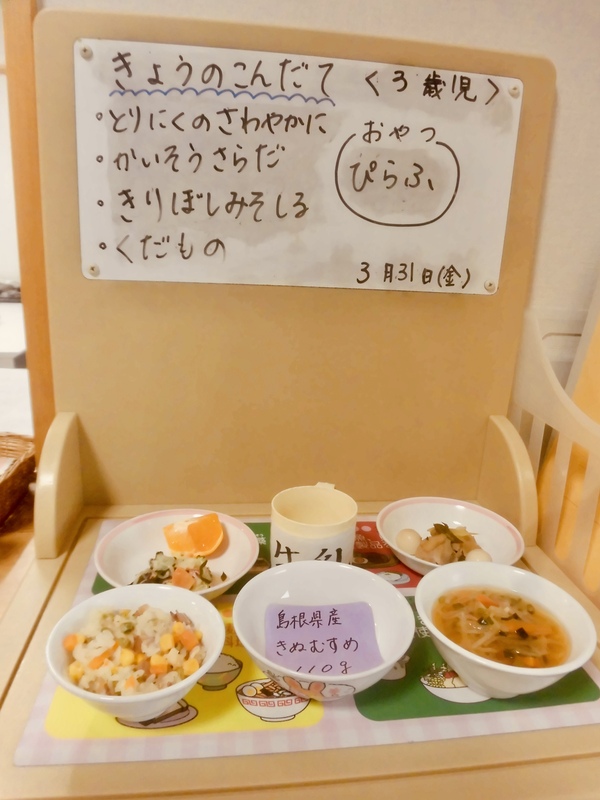 きょうのこんだて 〈3歳児〉
・とりにくのさわやかに
・かいそうさらだ
・きりぼしみそしる
・くだもの
おやつ
ぴらふ
3月31日(金)
島根県産
きぬむすめ
110g